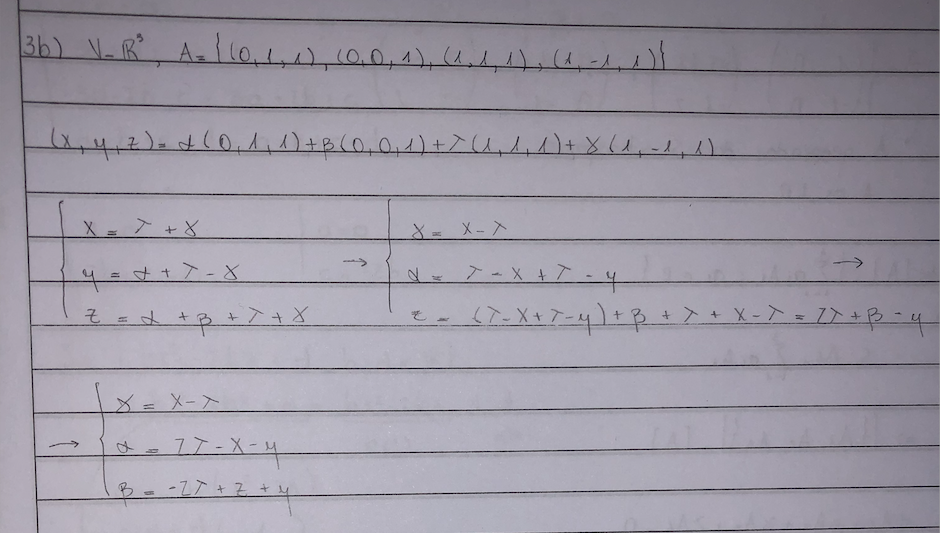 3b) V=R³, A={(0,1,1), (0,0,1), (1,1,1), (1,-1,1)}
(x,y,z)=α(0,1,1)+β(0,0,1)+λ(1,1,1)+γ(1,-1,1)
{ x = λ + γ { γ = x-λ
y = α + λ - γ → α = λ - x + λ - y →
z = α + β + λ + γ z = (λ-x+λ-y) + β + λ + x-λ = 2λ + β - y
{ γ = x-λ
→ α = 2λ - x - y
β = -2λ + z + y